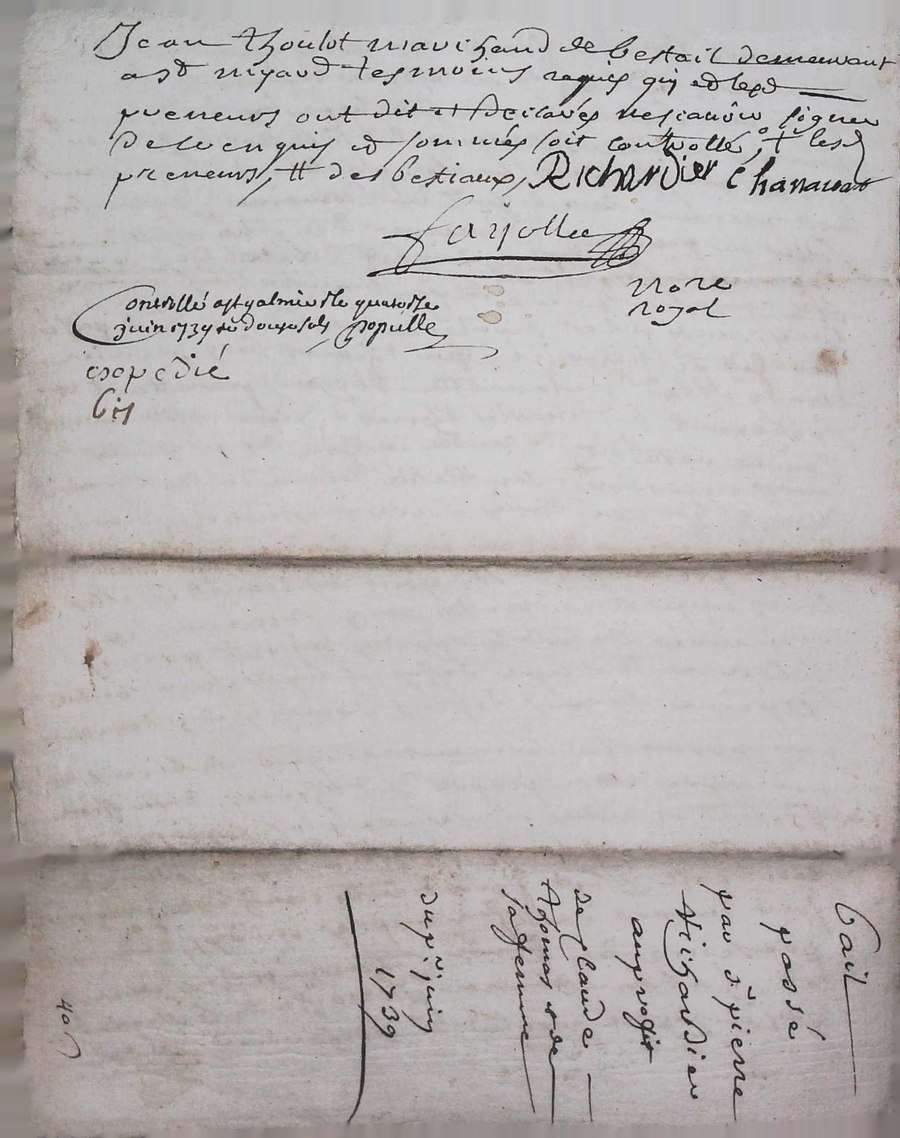 Jean thoulot marchand de bestail demeurant
a st nizard tesmoins requis qui et lesd
preneurs ont dit et declarés ne scavoir signer
de ce enquis et sommés soit controllé, + lesd
preneurs, # des bestiaux, Richardier Chanavat
fayolle
nore
royal
Controllé a st galmier le quatorze
juin 1739 Populle
expedié
Bail
passé
par sr pierre
Richardier
au proffit
de Claude
thomas et de
sa femme
du pr juin
1739